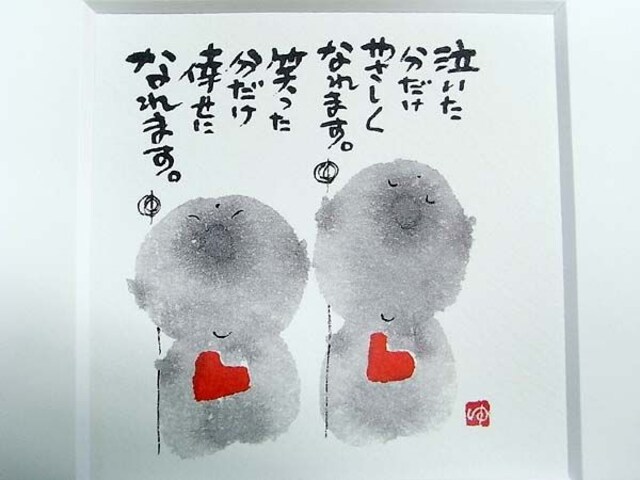 泣いた
分だけ
やさしく
なれます。
笑った
分だけ
倖せに
なれます。
ゆ